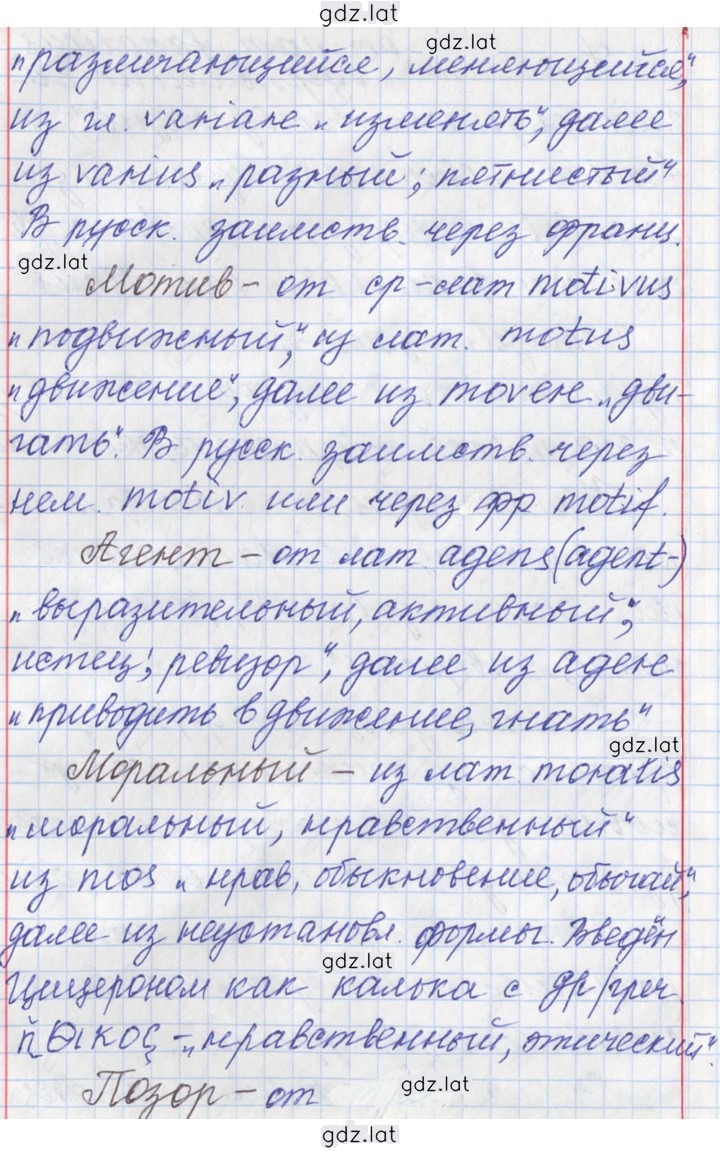 gdz.lat
gdz.lat
„различающийся, меняющийся“,
из гл. variare „изменять“, далее
из varius „разный; пятнистый“
В русск. заимств. через франц.
gdz.lat
Мотив – от ср-лат motivus
„подвижный“, из лат. motus
„движение“, далее из movere „дви-
гать“. В русск. заимств. через
нем. motiv или через фр motif.
Агент – от лат. agens (agent-)
„выразительный, активный“;
истец; ревизор“, далее из agere
„приводить в движение, гнать“
gdz.lat
Моральный – из лат. moralis
„моральный, нравственный“
из mos „нрав, обыкновение, обычай“,
далее из неустановл. формы. Введён
gdz.lat
Цицероном как калька с др/греч.
ἠθικος – „нравственный, этический“.
Позор – от
gdz.lat
gdz.lat